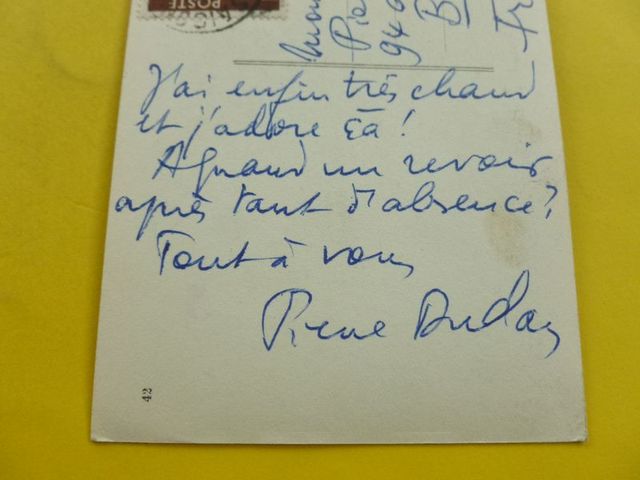 POSTE
J'ai enfin très chaud
et j'adore ça !
A quand un revoir
après tant d'absence ?
Tout à vous
Pierre Dudan
42
94